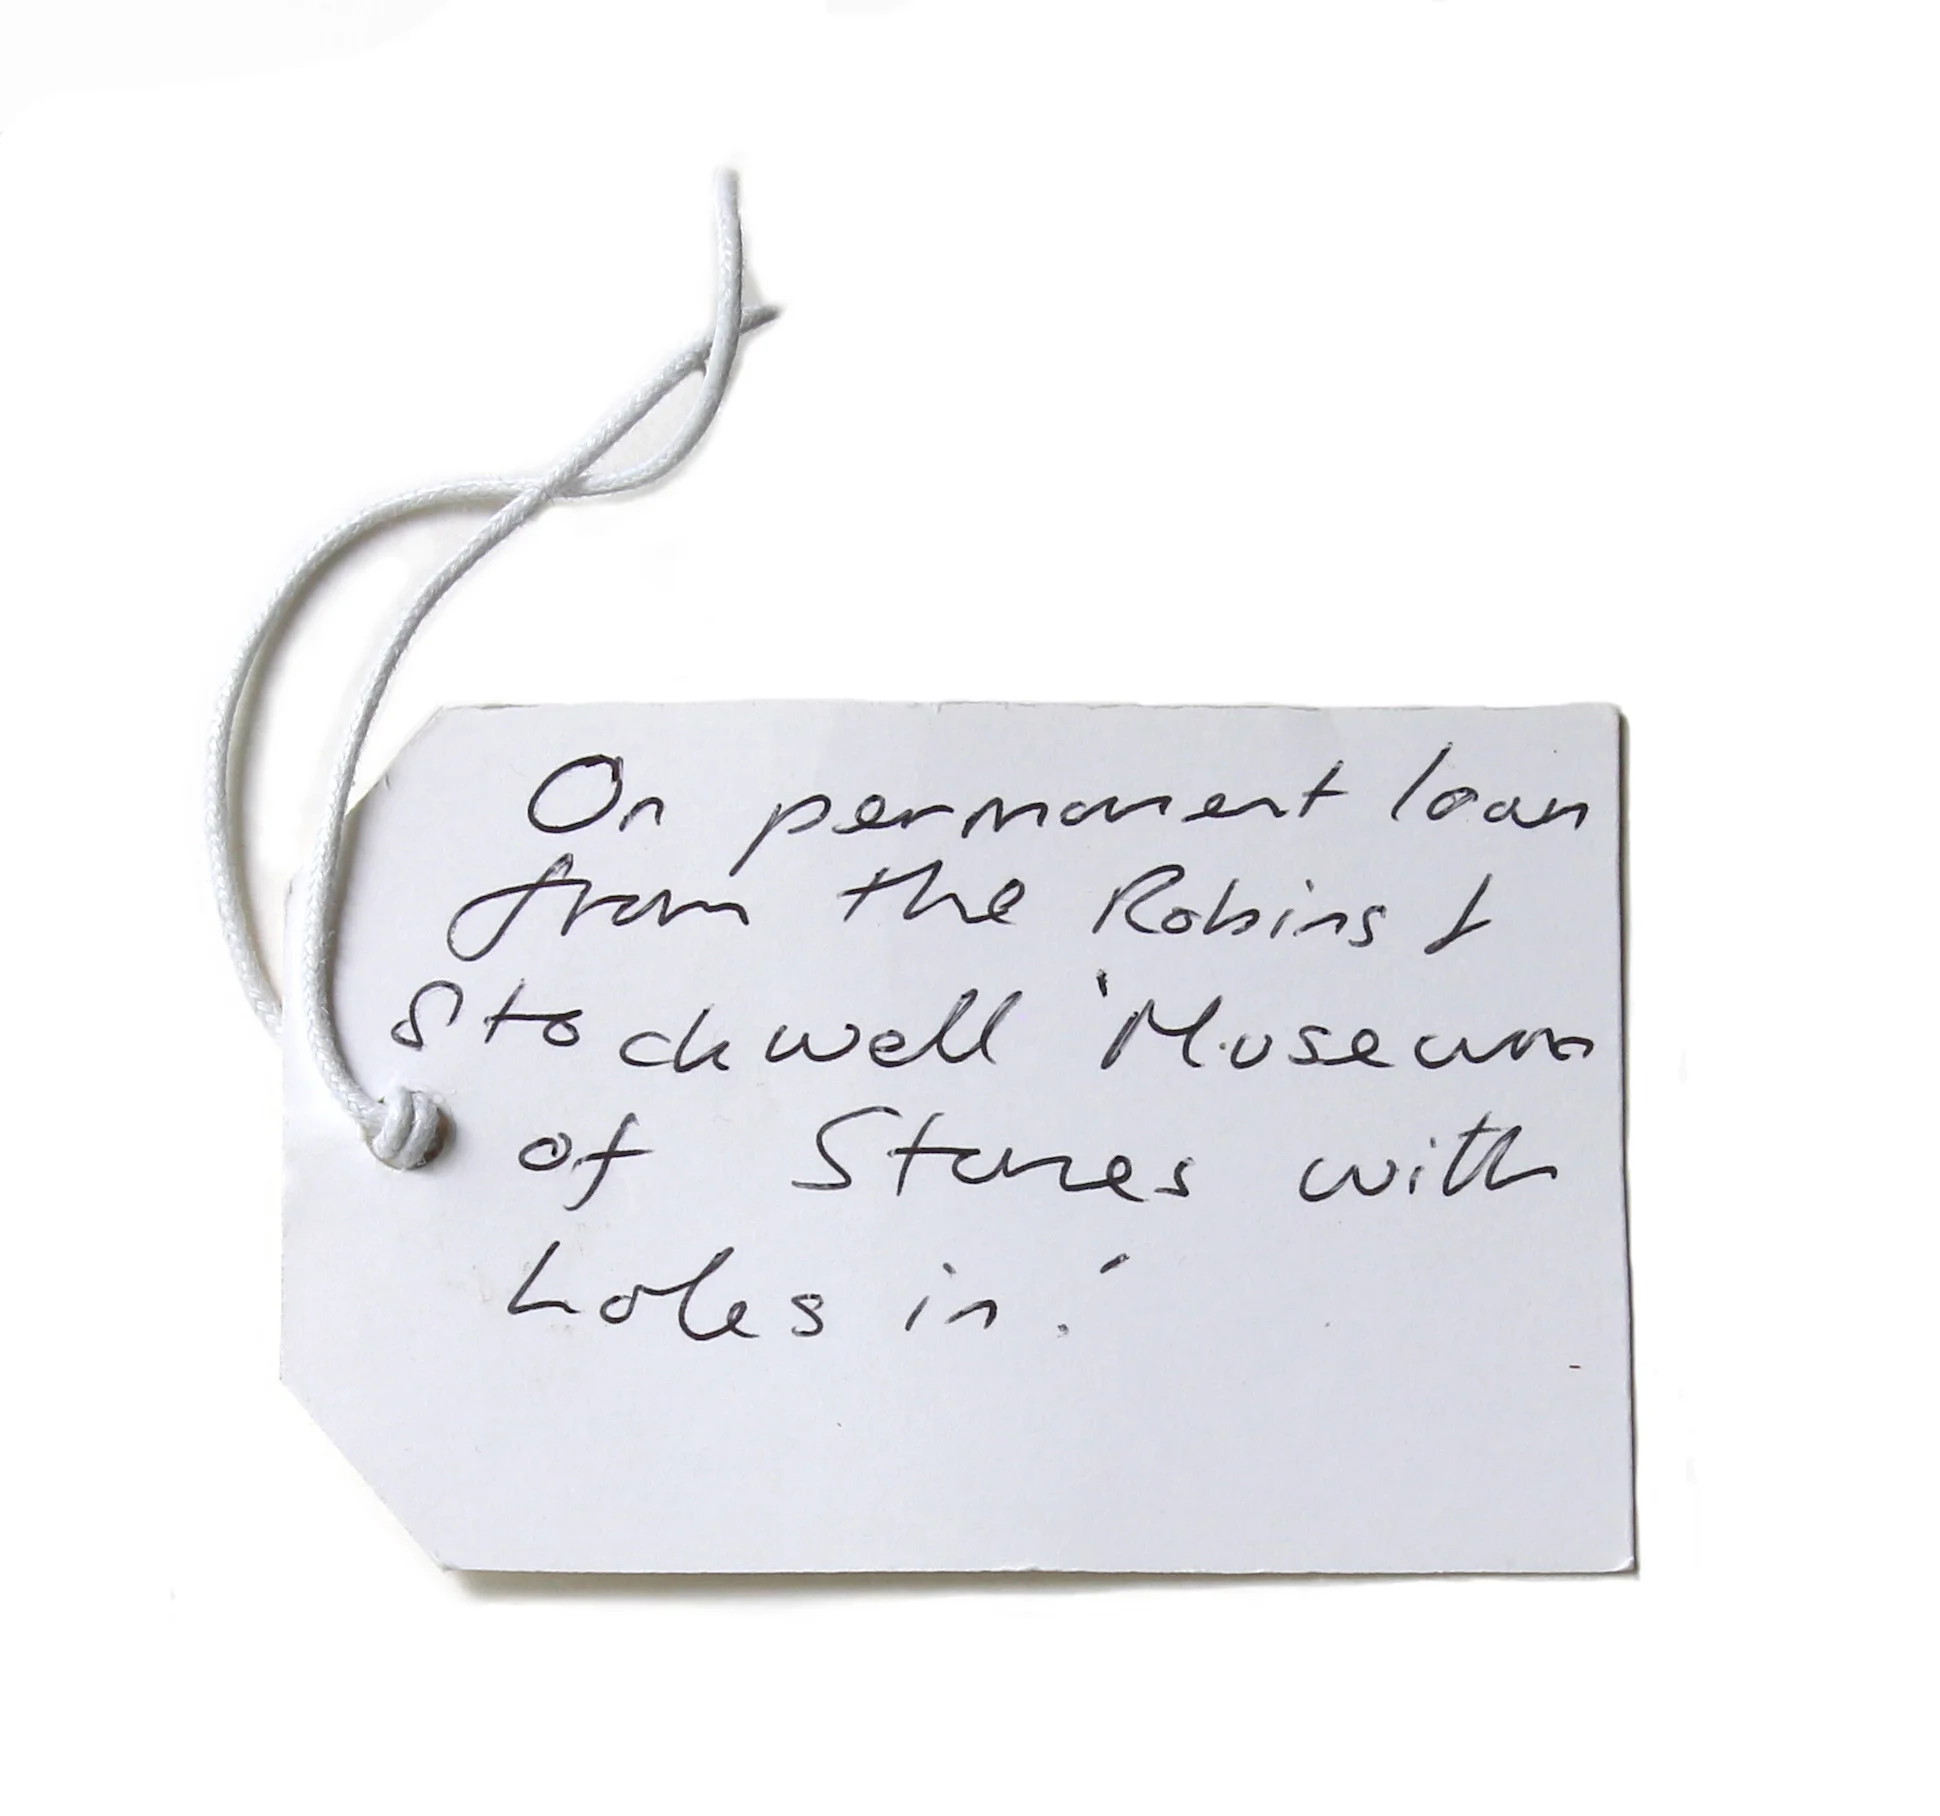 On permanent loan
from the Robins &
Stockwell 'Museum
of Stones with
holes in.'